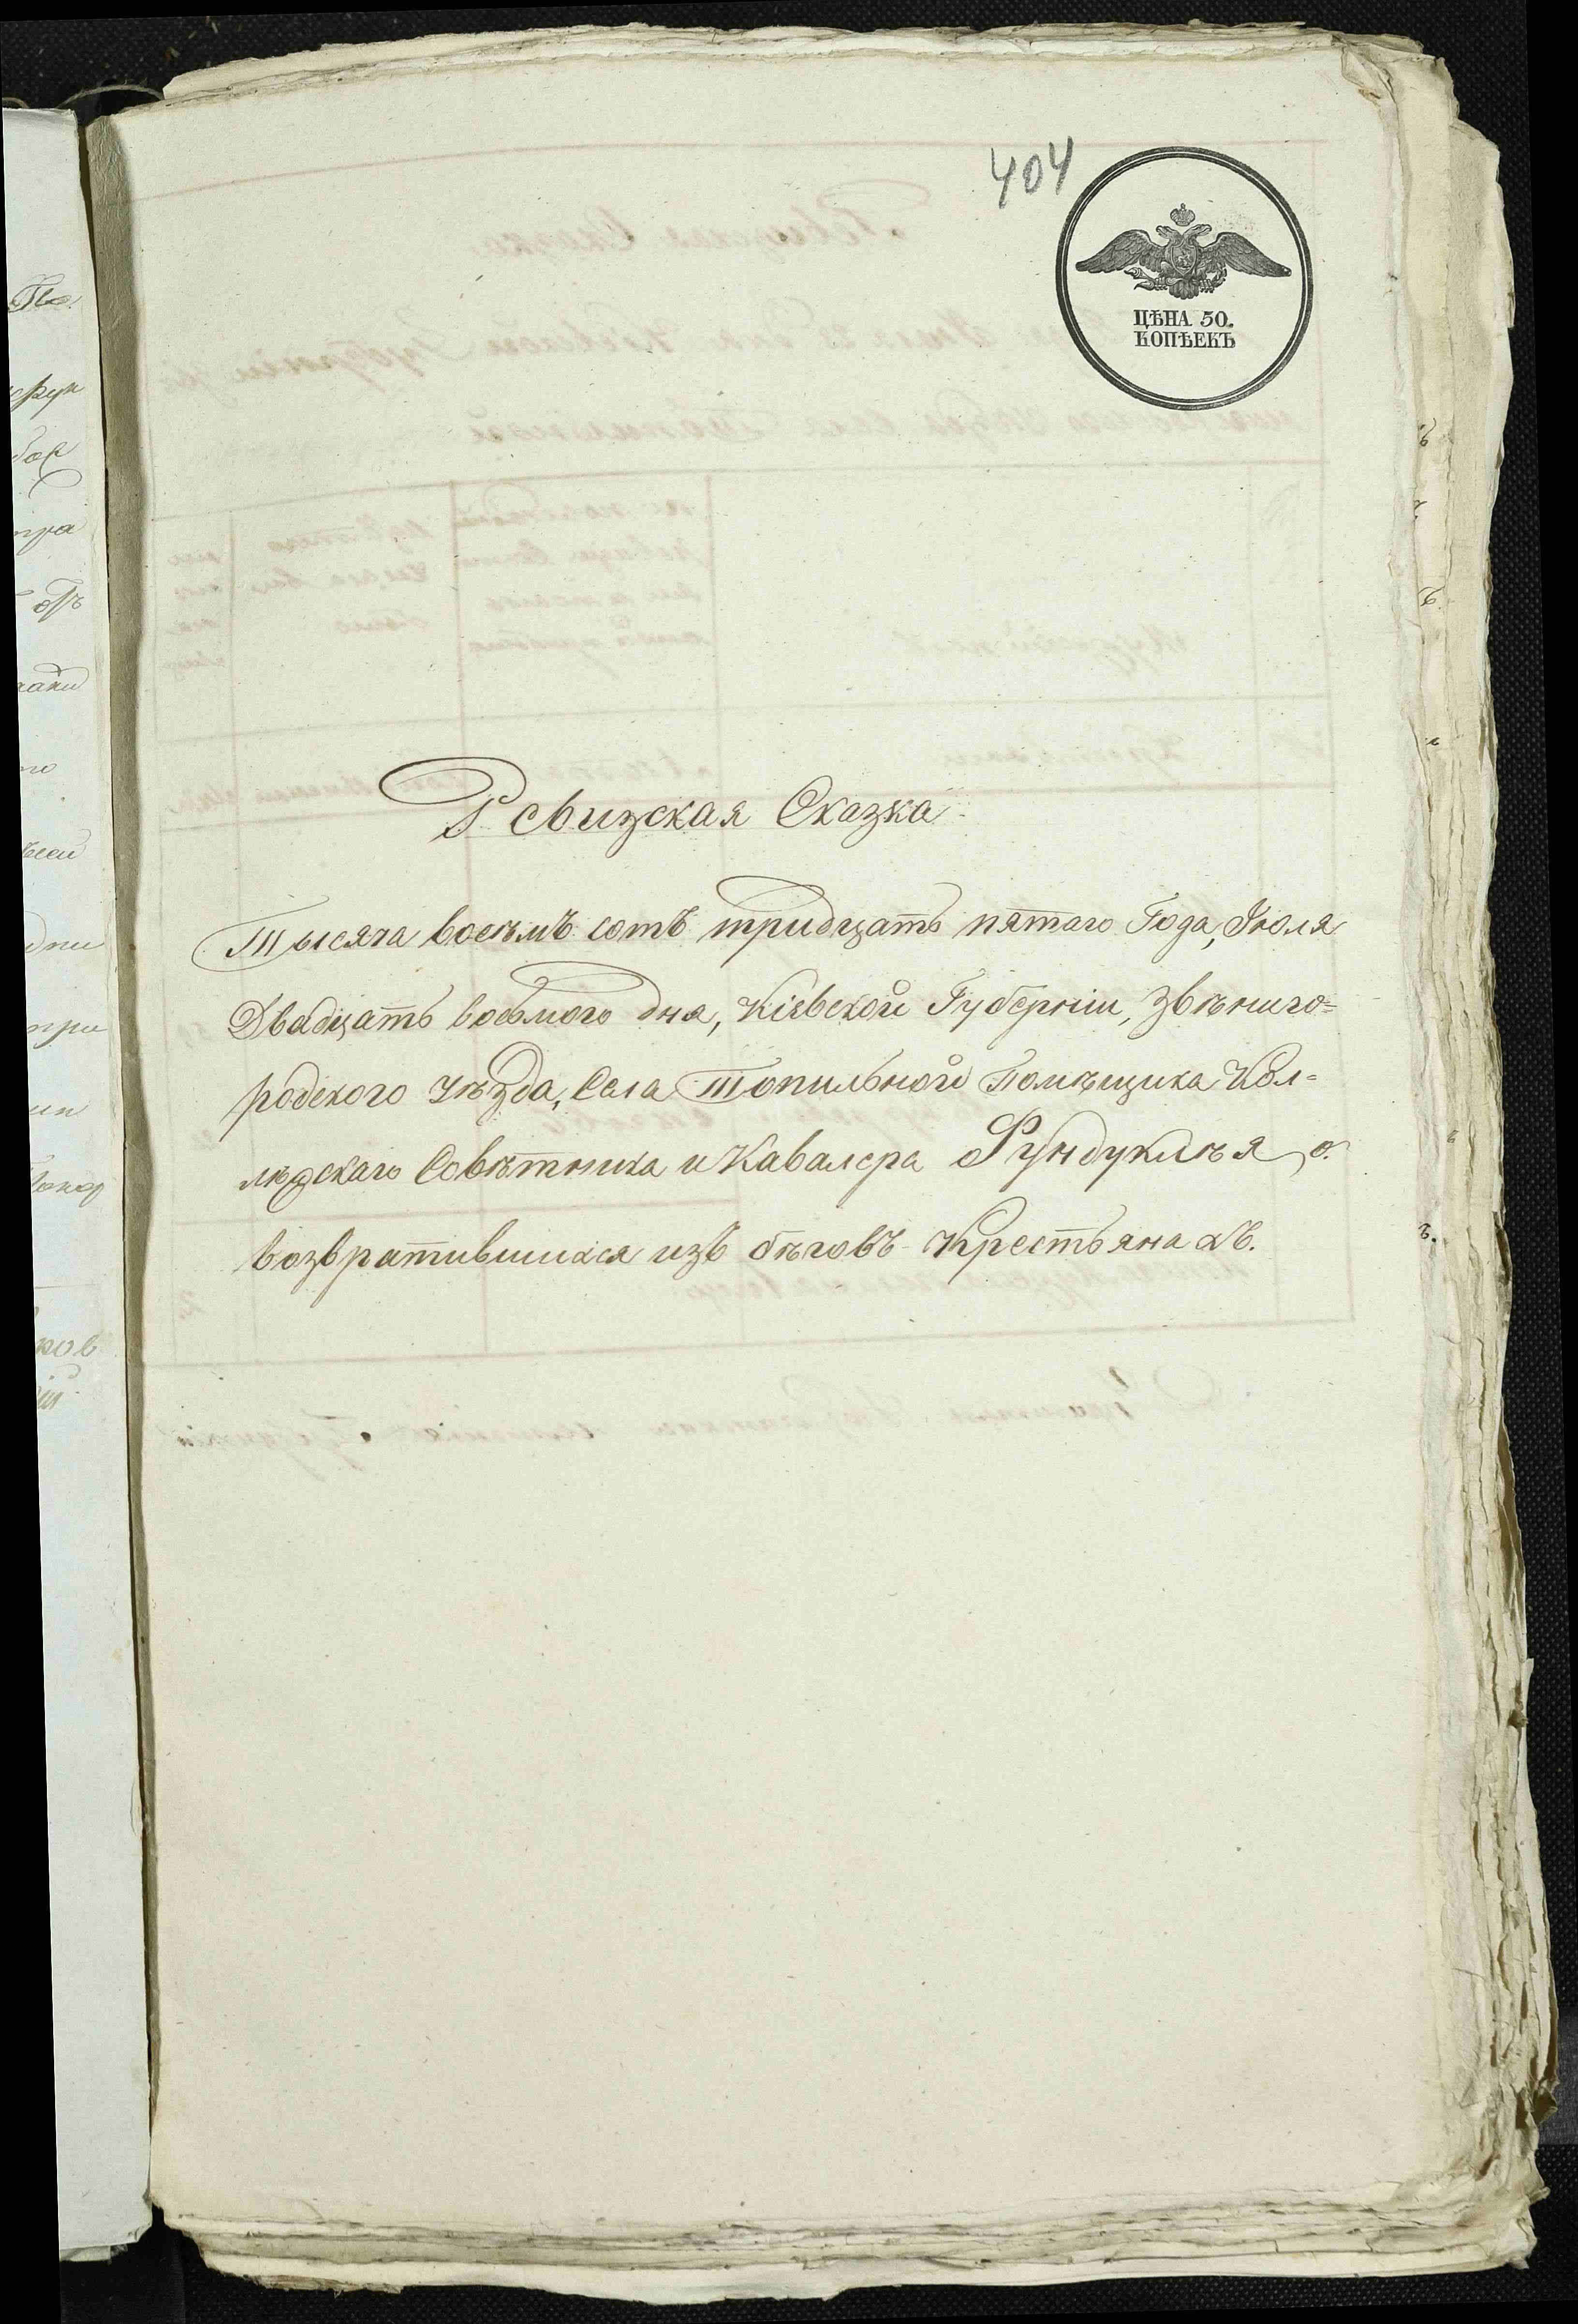 404
ЦѢНА 50.
КОПѢЕКЪ
Ревизская Сказка
Тысяча восѣмъ сотъ тридцать пятаго Года, Іюля
Двадцать восьмого дня, Кіевской Губерніи, Звѣниго=
родского Уѣзда, Села Топильной Помѣщика Кол=
лѣжскаго Совѣтника и Кавалера Фундуклѣя, о
возвратившихся изъ бѣговъ Крестьянахъ.